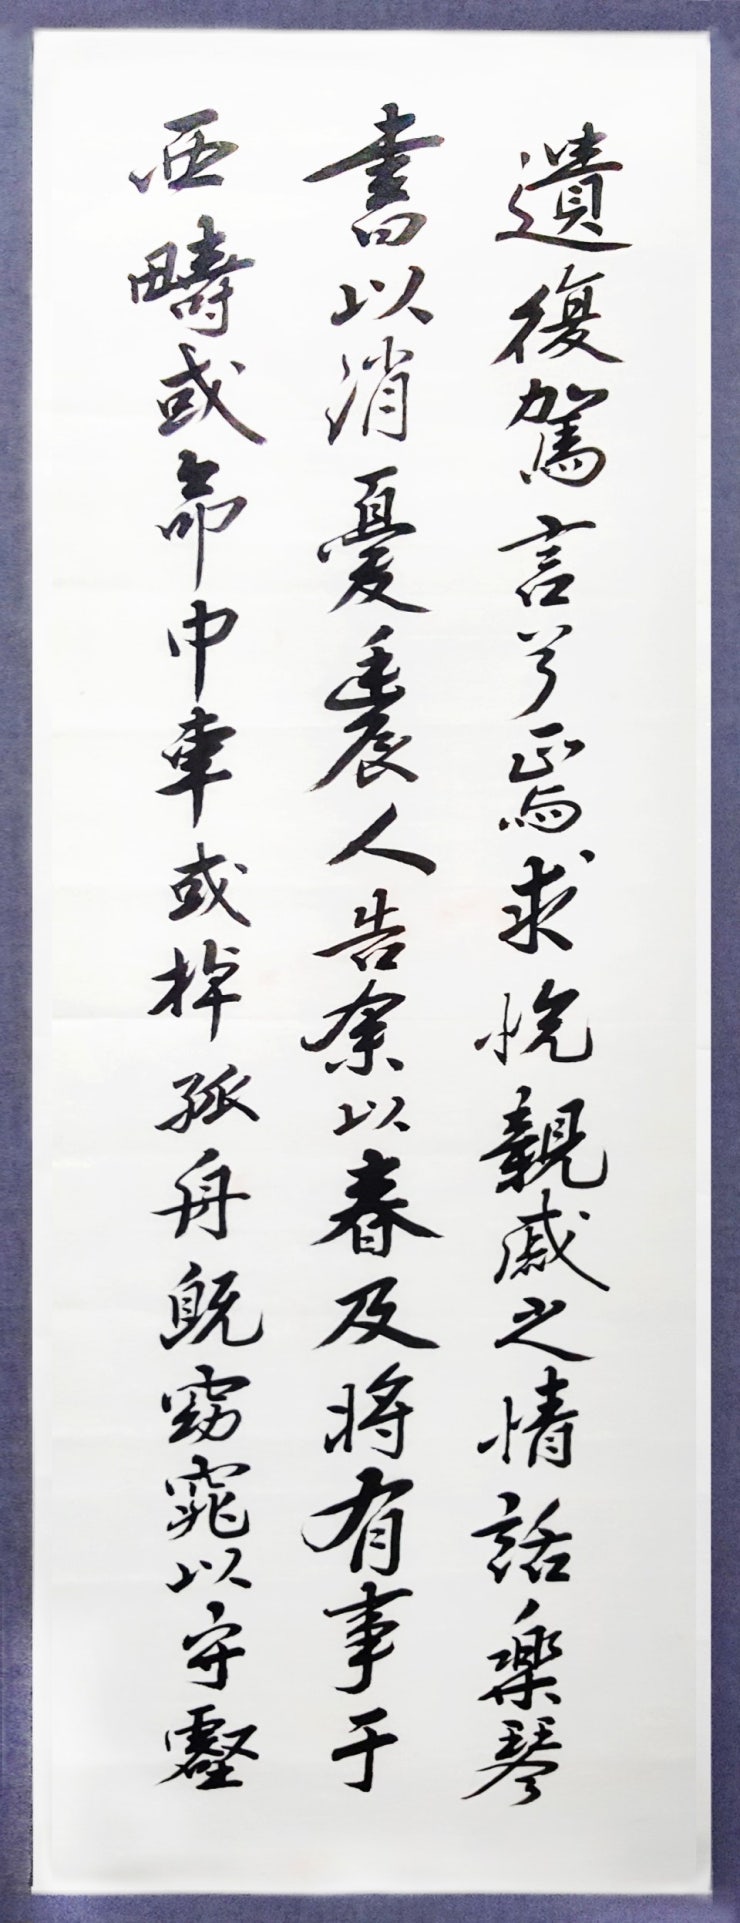 遺復駕言兮焉求悅親戚之情話樂琴
書以消憂農人告余以春及將有事于
西疇或命巾車或棹孤舟既窈窕以壑